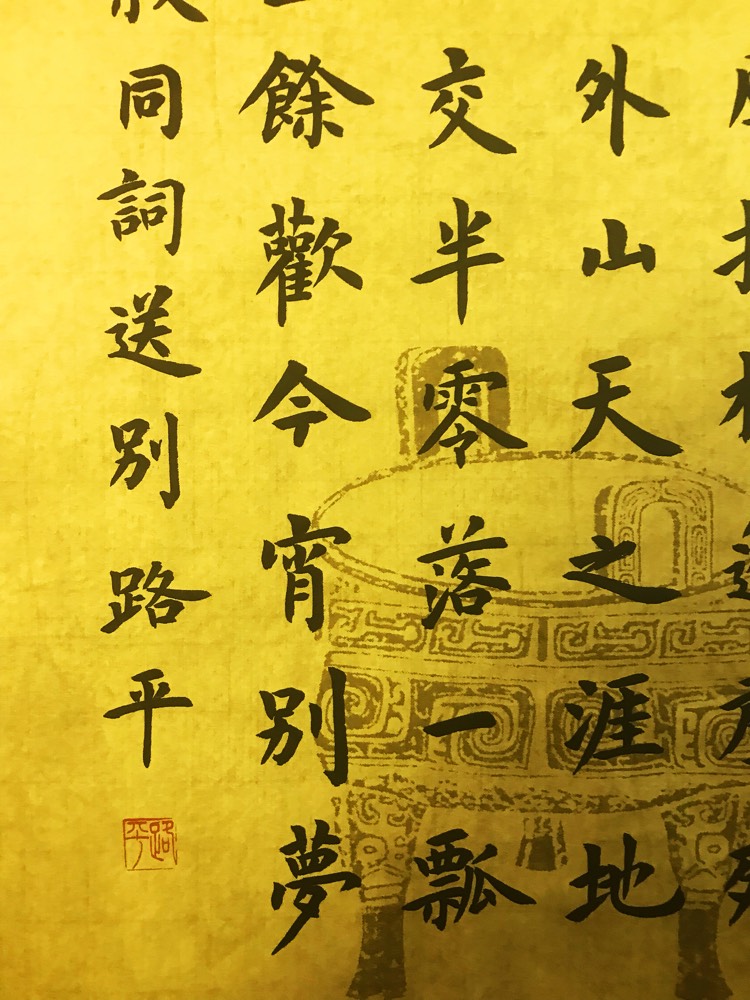 外山天之涯地
交半零落一瓢
餘歡今宵別夢
同詞送別路平
路平